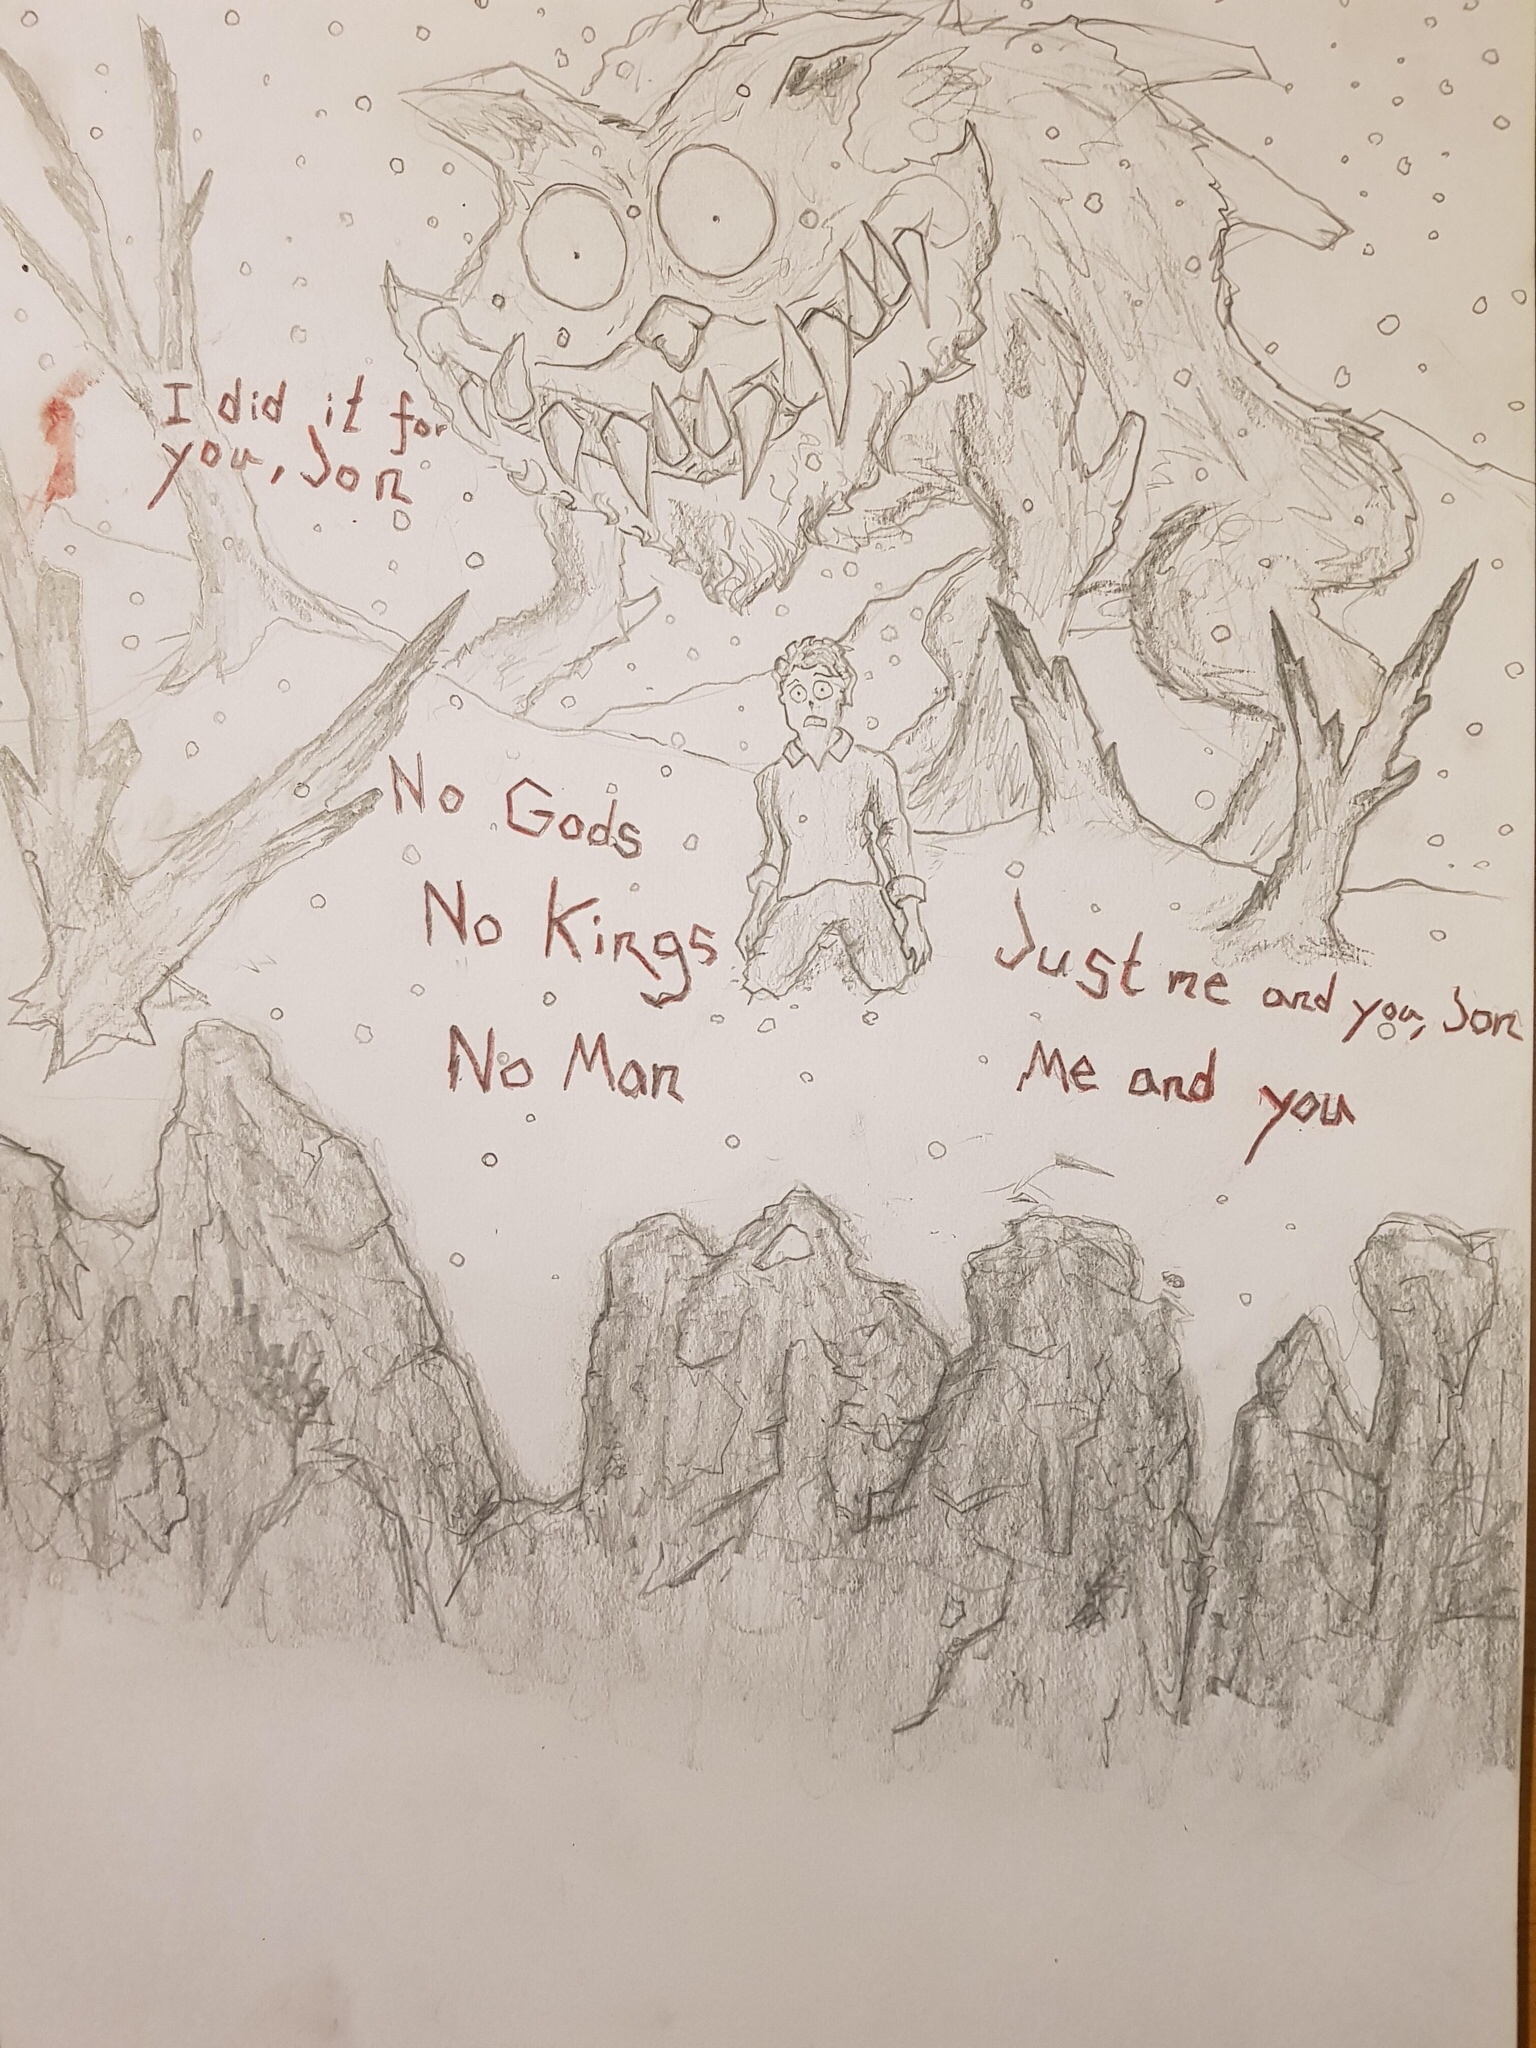 I did it for
you, Jon
No Gods
No Kings
No Man
Just me and you, Jon
Me and you